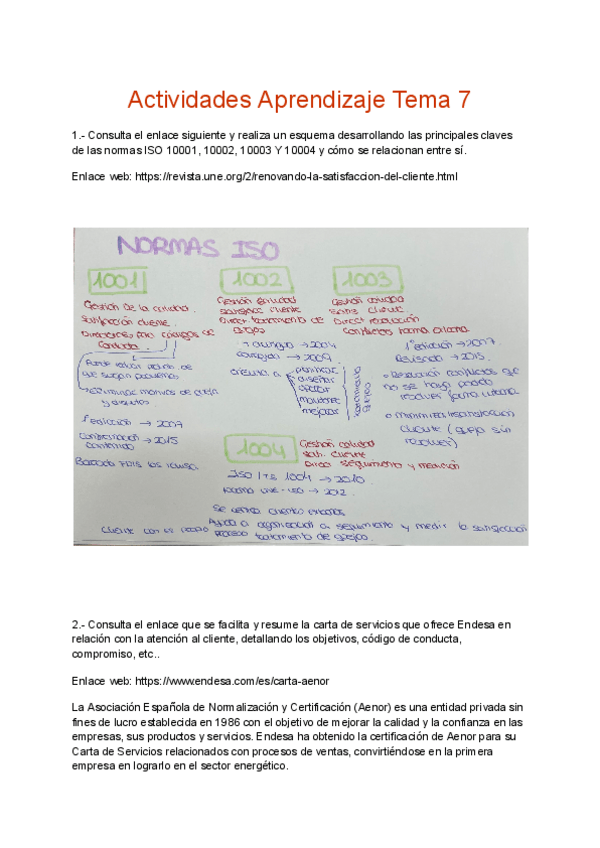 Actividades Aprendizaje Tema 7
1.- Consulta el enlace siguiente y realiza un esquema desarrollando las principales claves
de las normas ISO 10001, 10002, 10003 Y 10004 y cómo se relacionan entre sí.
Enlace web: https://revista.une.org/2/renovando-la-satisfaccion-del-cliente.html
NORMAS ISO
1001
Gestión de la calidad.
Satisfacción cliente.
Direct
códigos de
Conducta.
que surjan problemas
eliminar motivos de queja
y
1ª edición → 2007
→ 2015
contenido
Basado
1002
Gestión calidad
satisfacc cliente
Direct tratamiento de
quejas
→ 2004
→ 2009
planificar
diseñar
operar
mantener
mejorar
tratamiento
quejas
1003
Gestión calidad
Satis cliente
Direct resolución
Conflictos forma externa
1ª edición → 2007
Revisado → 2015
Resolución conflictos que
no se haya podido
resolver forma interna
Minimizar insatisfacción
cliente (queja sin
resolver)
1004
Gestión calidad
Sat. cliente
Direct seguimiento y medición
ISO / TS 1004 → 2010
norma UNE-ISO → 2012
se centra cliente externos
Ayuda a organización a seguimiento y medir la satisfacción
cliente con
proceso tratamiento de quejas.
2.- Consulta el enlace que se facilita y resume la carta de servicios que ofrece Endesa en
relación con la atención al cliente, detallando los objetivos, código de conducta,
compromiso, etc..
Enlace web: https://www.endesa.com/es/carta-aenor
La Asociación Española de Normalización y Certificación (Aenor) es una entidad privada sin
fines de lucro establecida en 1986 con el objetivo de mejorar la calidad y la confianza en las
empresas, sus productos y servicios. Endesa ha obtenido la certificación de Aenor para su
Carta de Servicios relacionados con procesos de ventas, convirtiéndose en la primera
empresa en lograrlo en el sector energético.